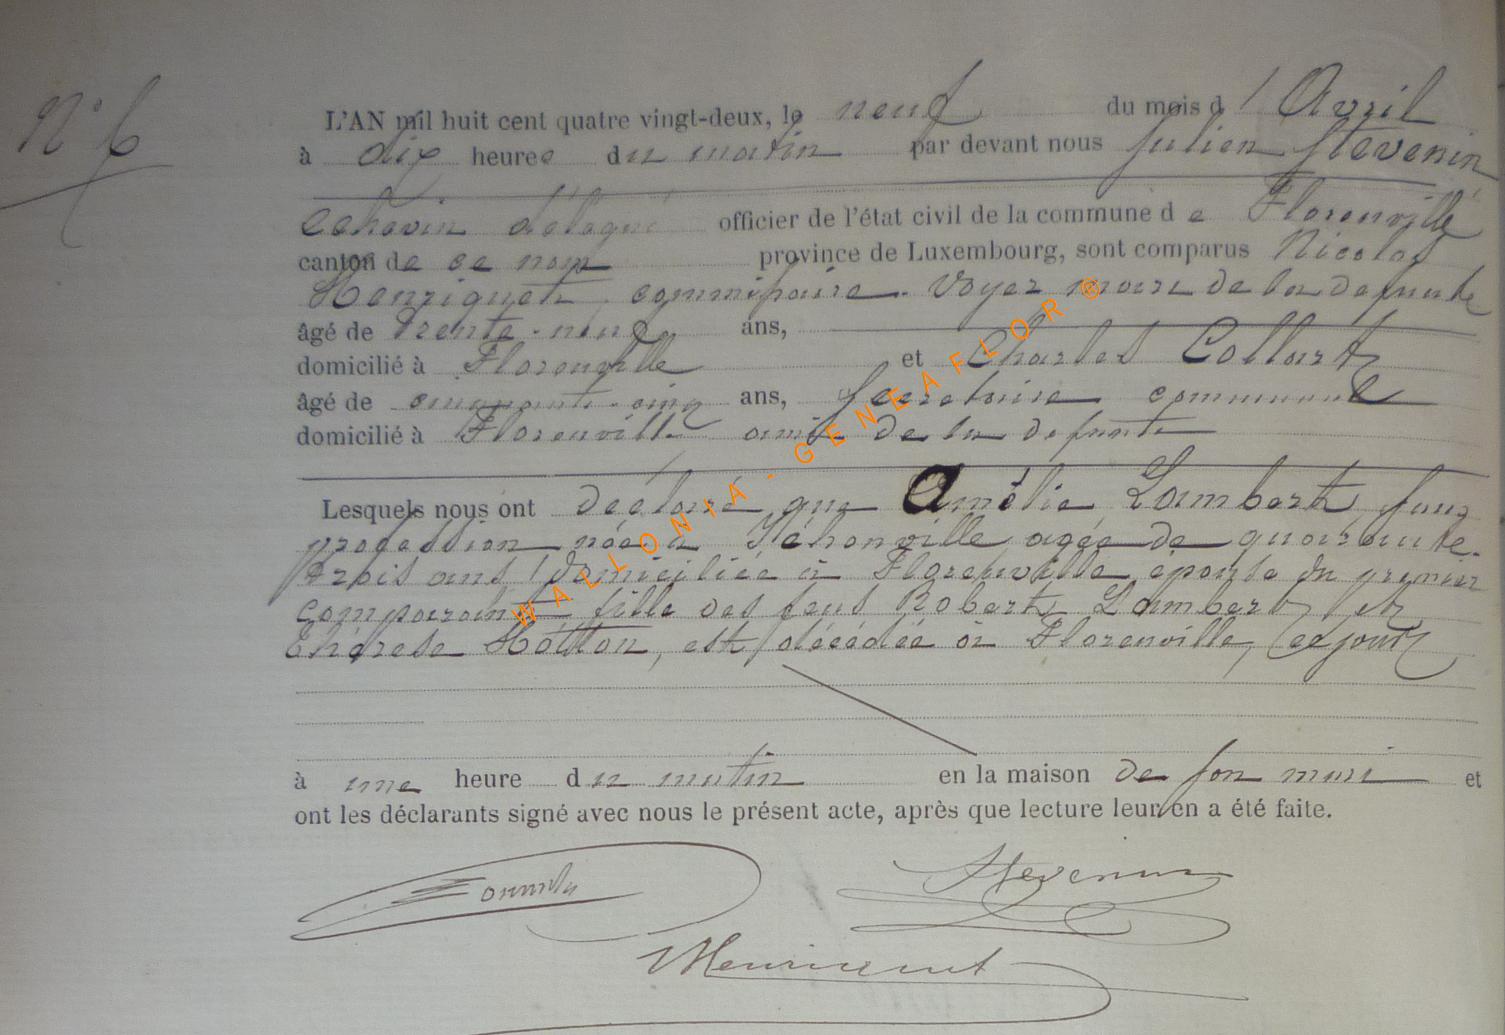 N° 6
L'AN mil huit cent quatre vingt-deux, le neuf du mois d'Avril
à dix heures du matin par devant nous Julien Stevenin
Echevin délégué officier de l'état civil de la commune de Florenville
canton de ce nom province de Luxembourg, sont comparus Nicolas
Henriquet, commissaire-Voyer mari de la defunte
âgé de trente-neuf ans,
domicilié à Florenville et Charles Collart
âgé de cinquante-cinq ans, Secretaire communal
domicilié à Florenville ami de la defunte
Lesquels nous ont déclaré que Amélie Lambert, sans
profession née à Séhonville agée de quarante-
trois ans, domiciliée à Florenville épouse du premier
comparant fille des feus Robert Lambert et
Thérèse Hotton, est décédée à Florenville, ce jour
à une heure du matin en la maison de son mari et
ont les déclarants signé avec nous le présent acte, après que lecture leur en a été faite.
Stevenin
Henriquet
WALLONIA-GENEAFLOR®